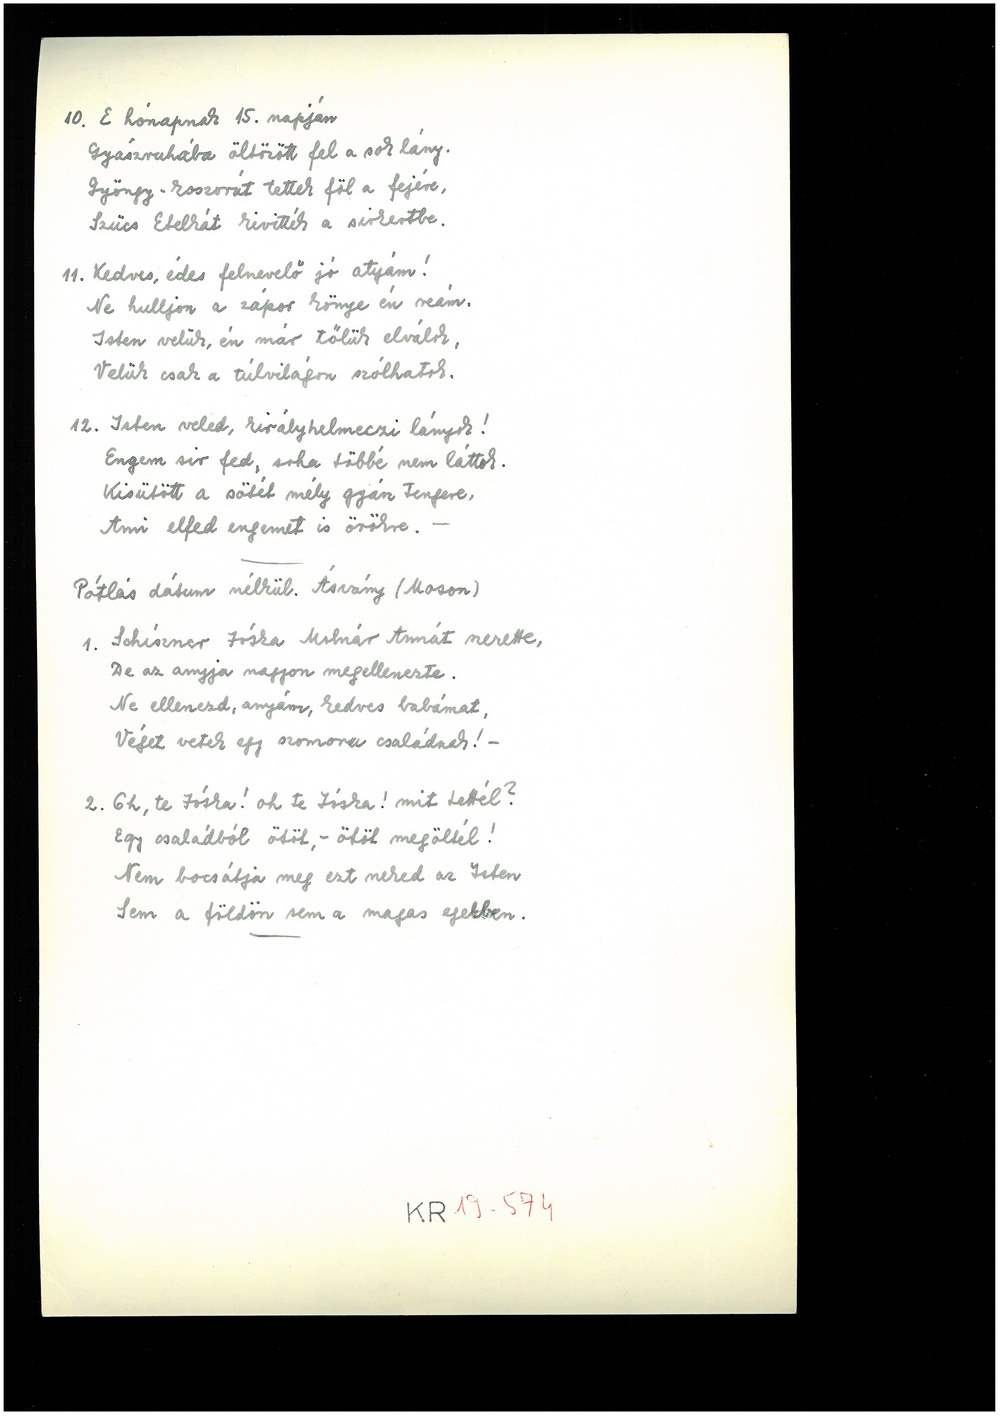 10. E hónapnak 15. napján
Gyászruhába öltözött fel a sok lány.
Gyöngy-koszorút tettek föl a fejére,
Szücs Etelkát kivitték a sirkertbe.
11. Kedves, édes felnevelő jó atyám!
Ne hulljon a zápor könye én reám.
Isten velük, én már tőlük elválok,
Velük csak a túlvilágon szólhatok.
12. Isten veled, királyhelmeczi lányok!
Engem sir fed, soha többé nem láttok.
Kisütött a sötét mély gyász tengere,
Ami elfed engemet is örökre. —
Pótlás dátum nélkül. Ásvány (Moson)
1. Schiszner Jóska Molnár Annát szerette,
De az anyja nagyon megellenezte.
Ne ellenezd, anyám, kedves babámat,
Véget vetek egy szomoru családnak! –
2. Oh, te Jóska! oh te Jóska! mit tettél?
Egy családból ötöt, – ötöt megöltél!
Nem bocsátja meg ezt neked az Isten
Sem a földön sem a magas egekben.
KR 19.574